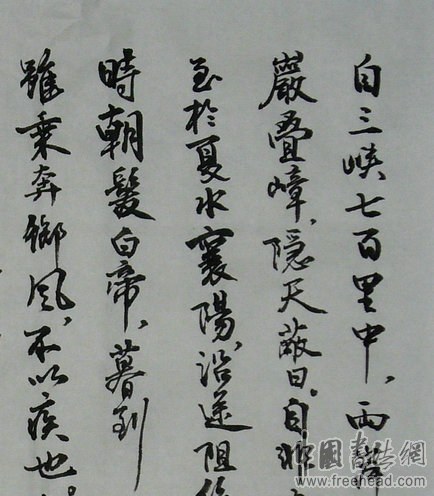 自三峡七百里中，両
嚴疊嶂，隐天蔽日。自非
至於夏水襄陽，沿逆阻
時朝髮白帝，暮到
雖乘奔御風，不以疾也。
中國書法網
www.freehead.com